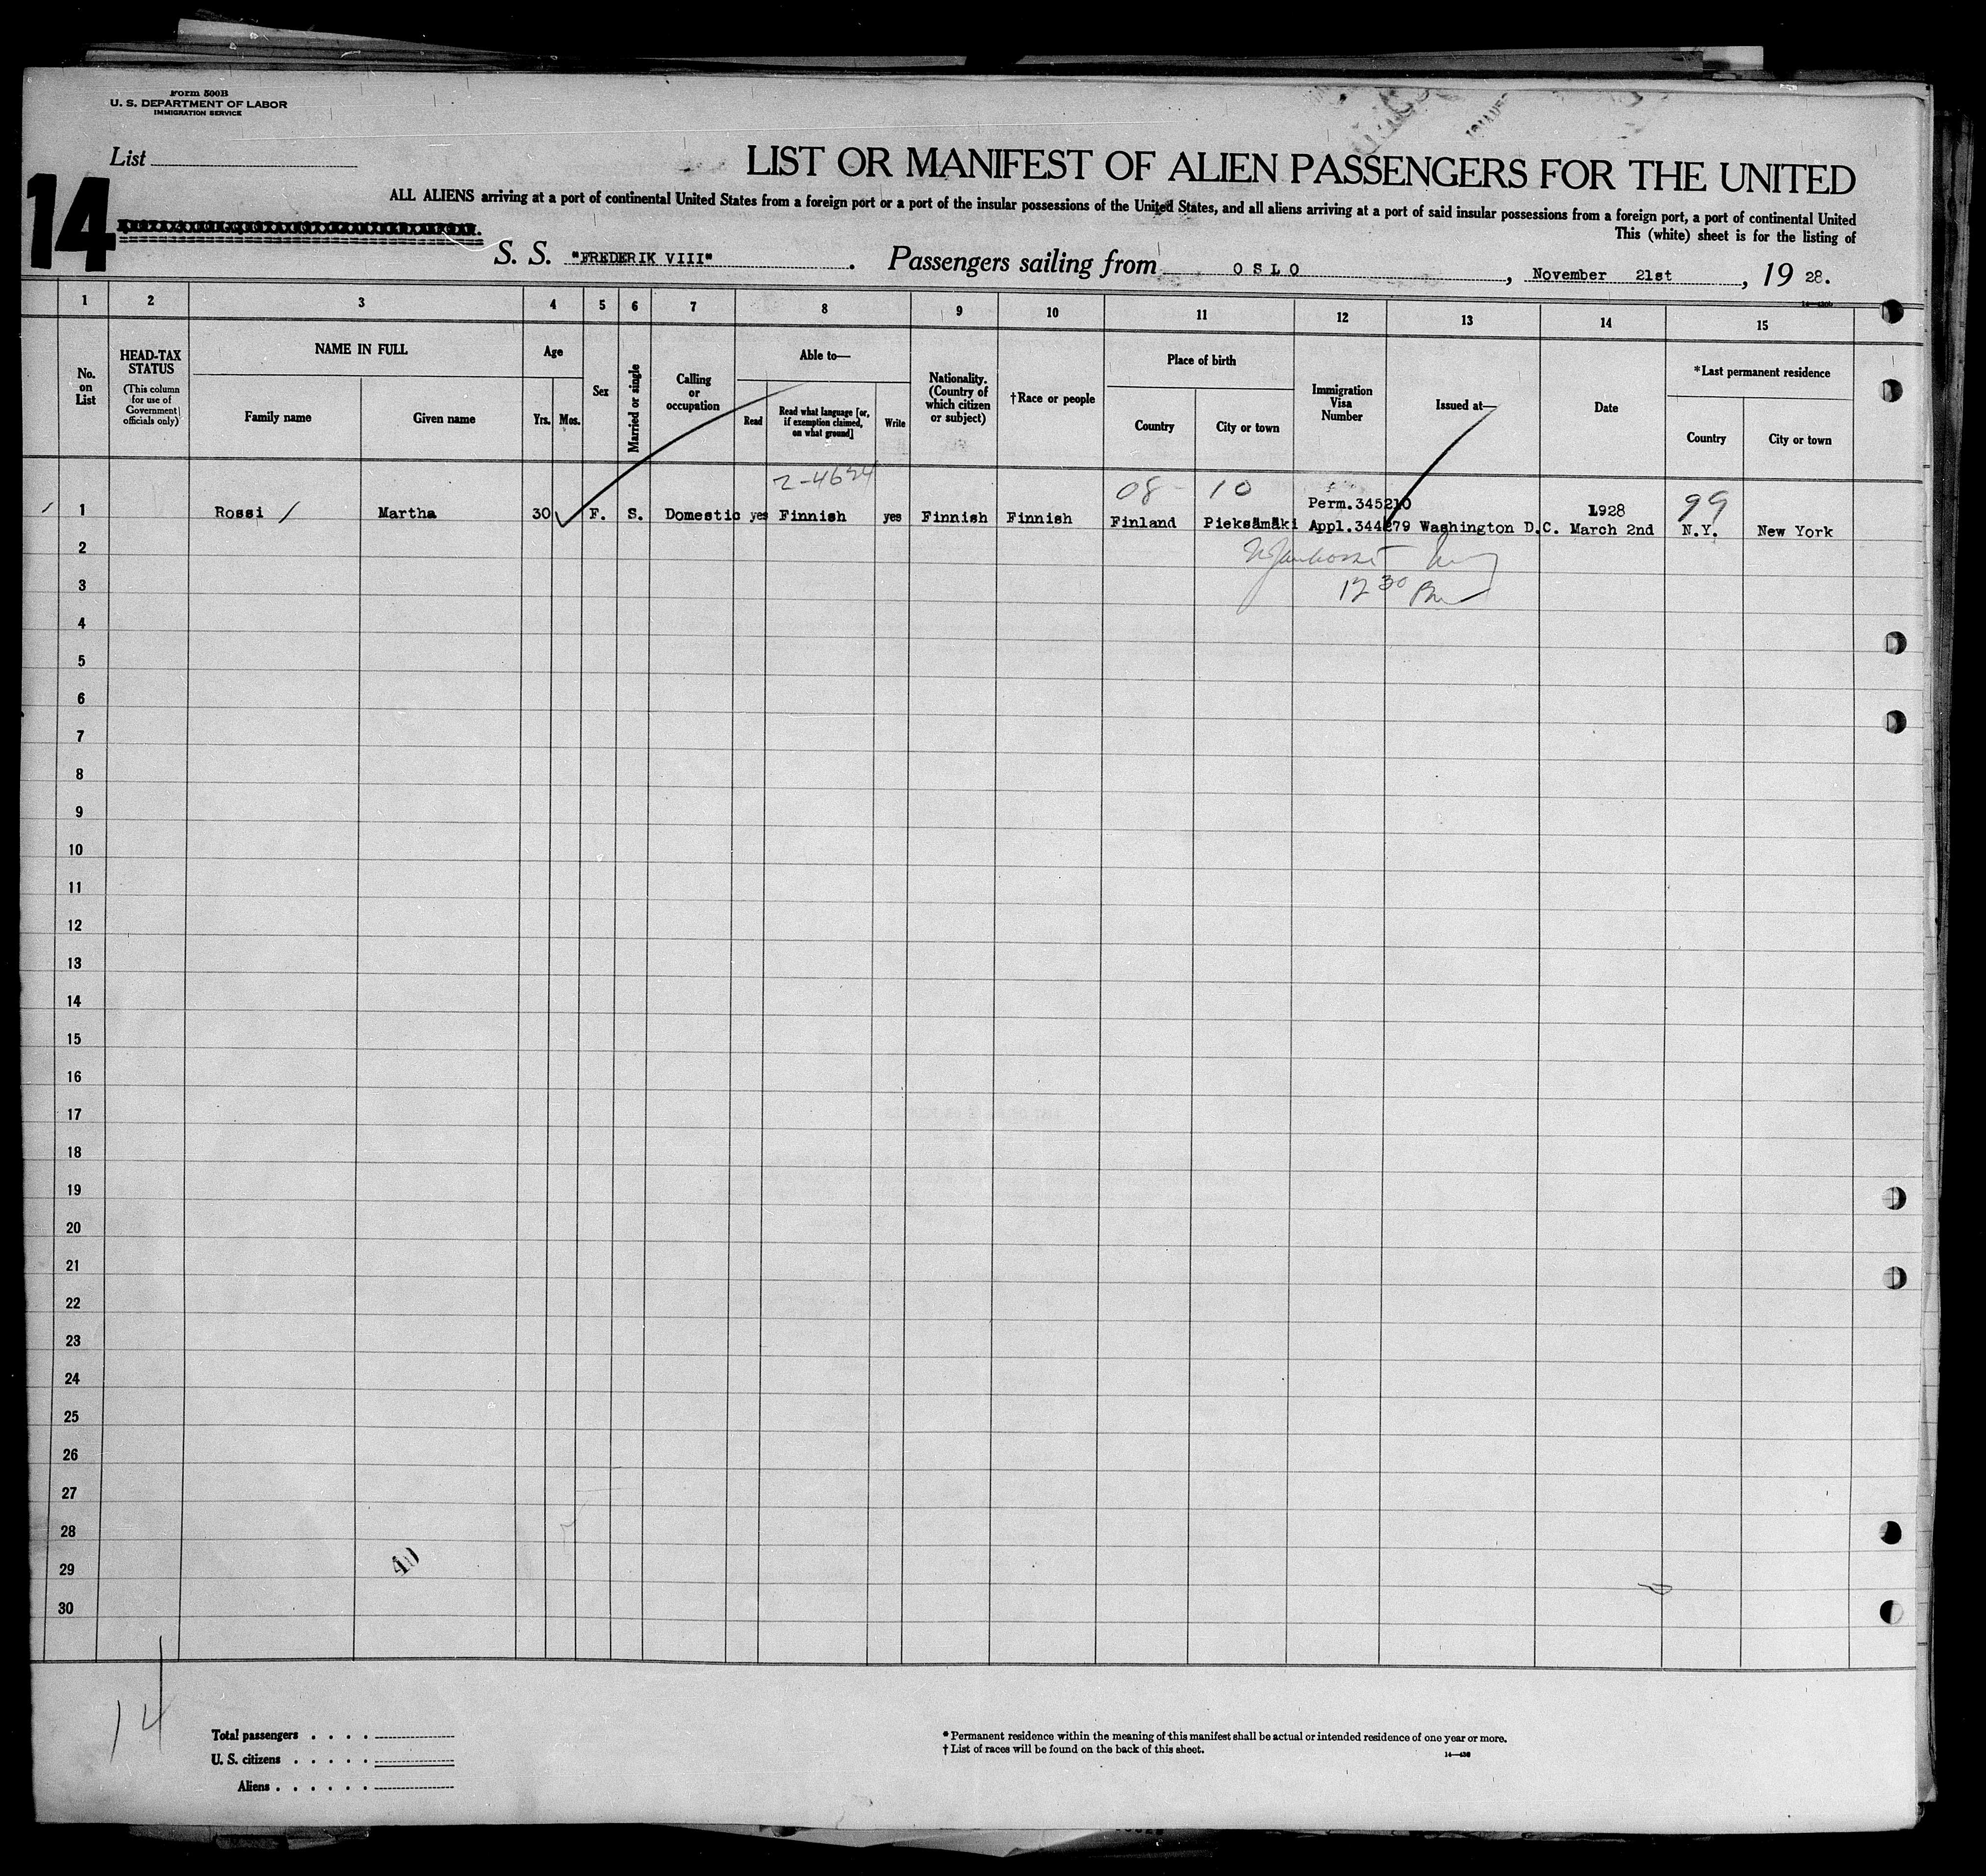 Form 500B
U. S. DEPARTMENT OF LABOR
IMMIGRATION SERVICE
List
14
LIST OR MANIFEST OF ALIEN PASSENGERS FOR THE UNITED
ALL ALIENS arriving at a port of continental United States from a foreign port or a port of the insular possessions of the United States, and all aliens arriving at a port of said insular possessions from a foreign port, a port of continental United
This (white) sheet is for the listing of
S. S. "FREDERIK VIII". Passengers sailing from OSLO, November 21st, 19 28.
1 2 3 4 5 6 7 8 9 10 11 12 13 14 15
No. on List
HEAD-TAX STATUS (This column for use of Government officials only)
NAME IN FULL
Family name
Given name
Age
Yrs. Mos.
Sex
Married or single
Calling or occupation
Able to—
Read
Read what language [or, if exemption claimed, on what ground]
Write
Nationality. (Country of which citizen or subject)
†Race or people
Place of birth
Country
City or town
Immigration Visa Number
Issued at—
Date
*Last permanent residence
Country
City or town
2-4624
08 10
Perm.345210
1928
99
1 Rossi Martha 30 F. S. Domestic yes Finnish yes Finnish Finnish Finland Pieksämäki Appl.344279 Washington D.C. March 2nd N.Y. New York
2
12 30 Pm
3
4
5
6
7
8
9
10
11
12
13
14
15
16
17
18
19
20
21
22
23
24
25
26
27
28
29
40
30
14
Total passengers . . . .
U. S. citizens . . . . .
Aliens . . . . . .
* Permanent residence within the meaning of this manifest shall be actual or intended residence of one year or more.
† List of races will be found on the back of this sheet.